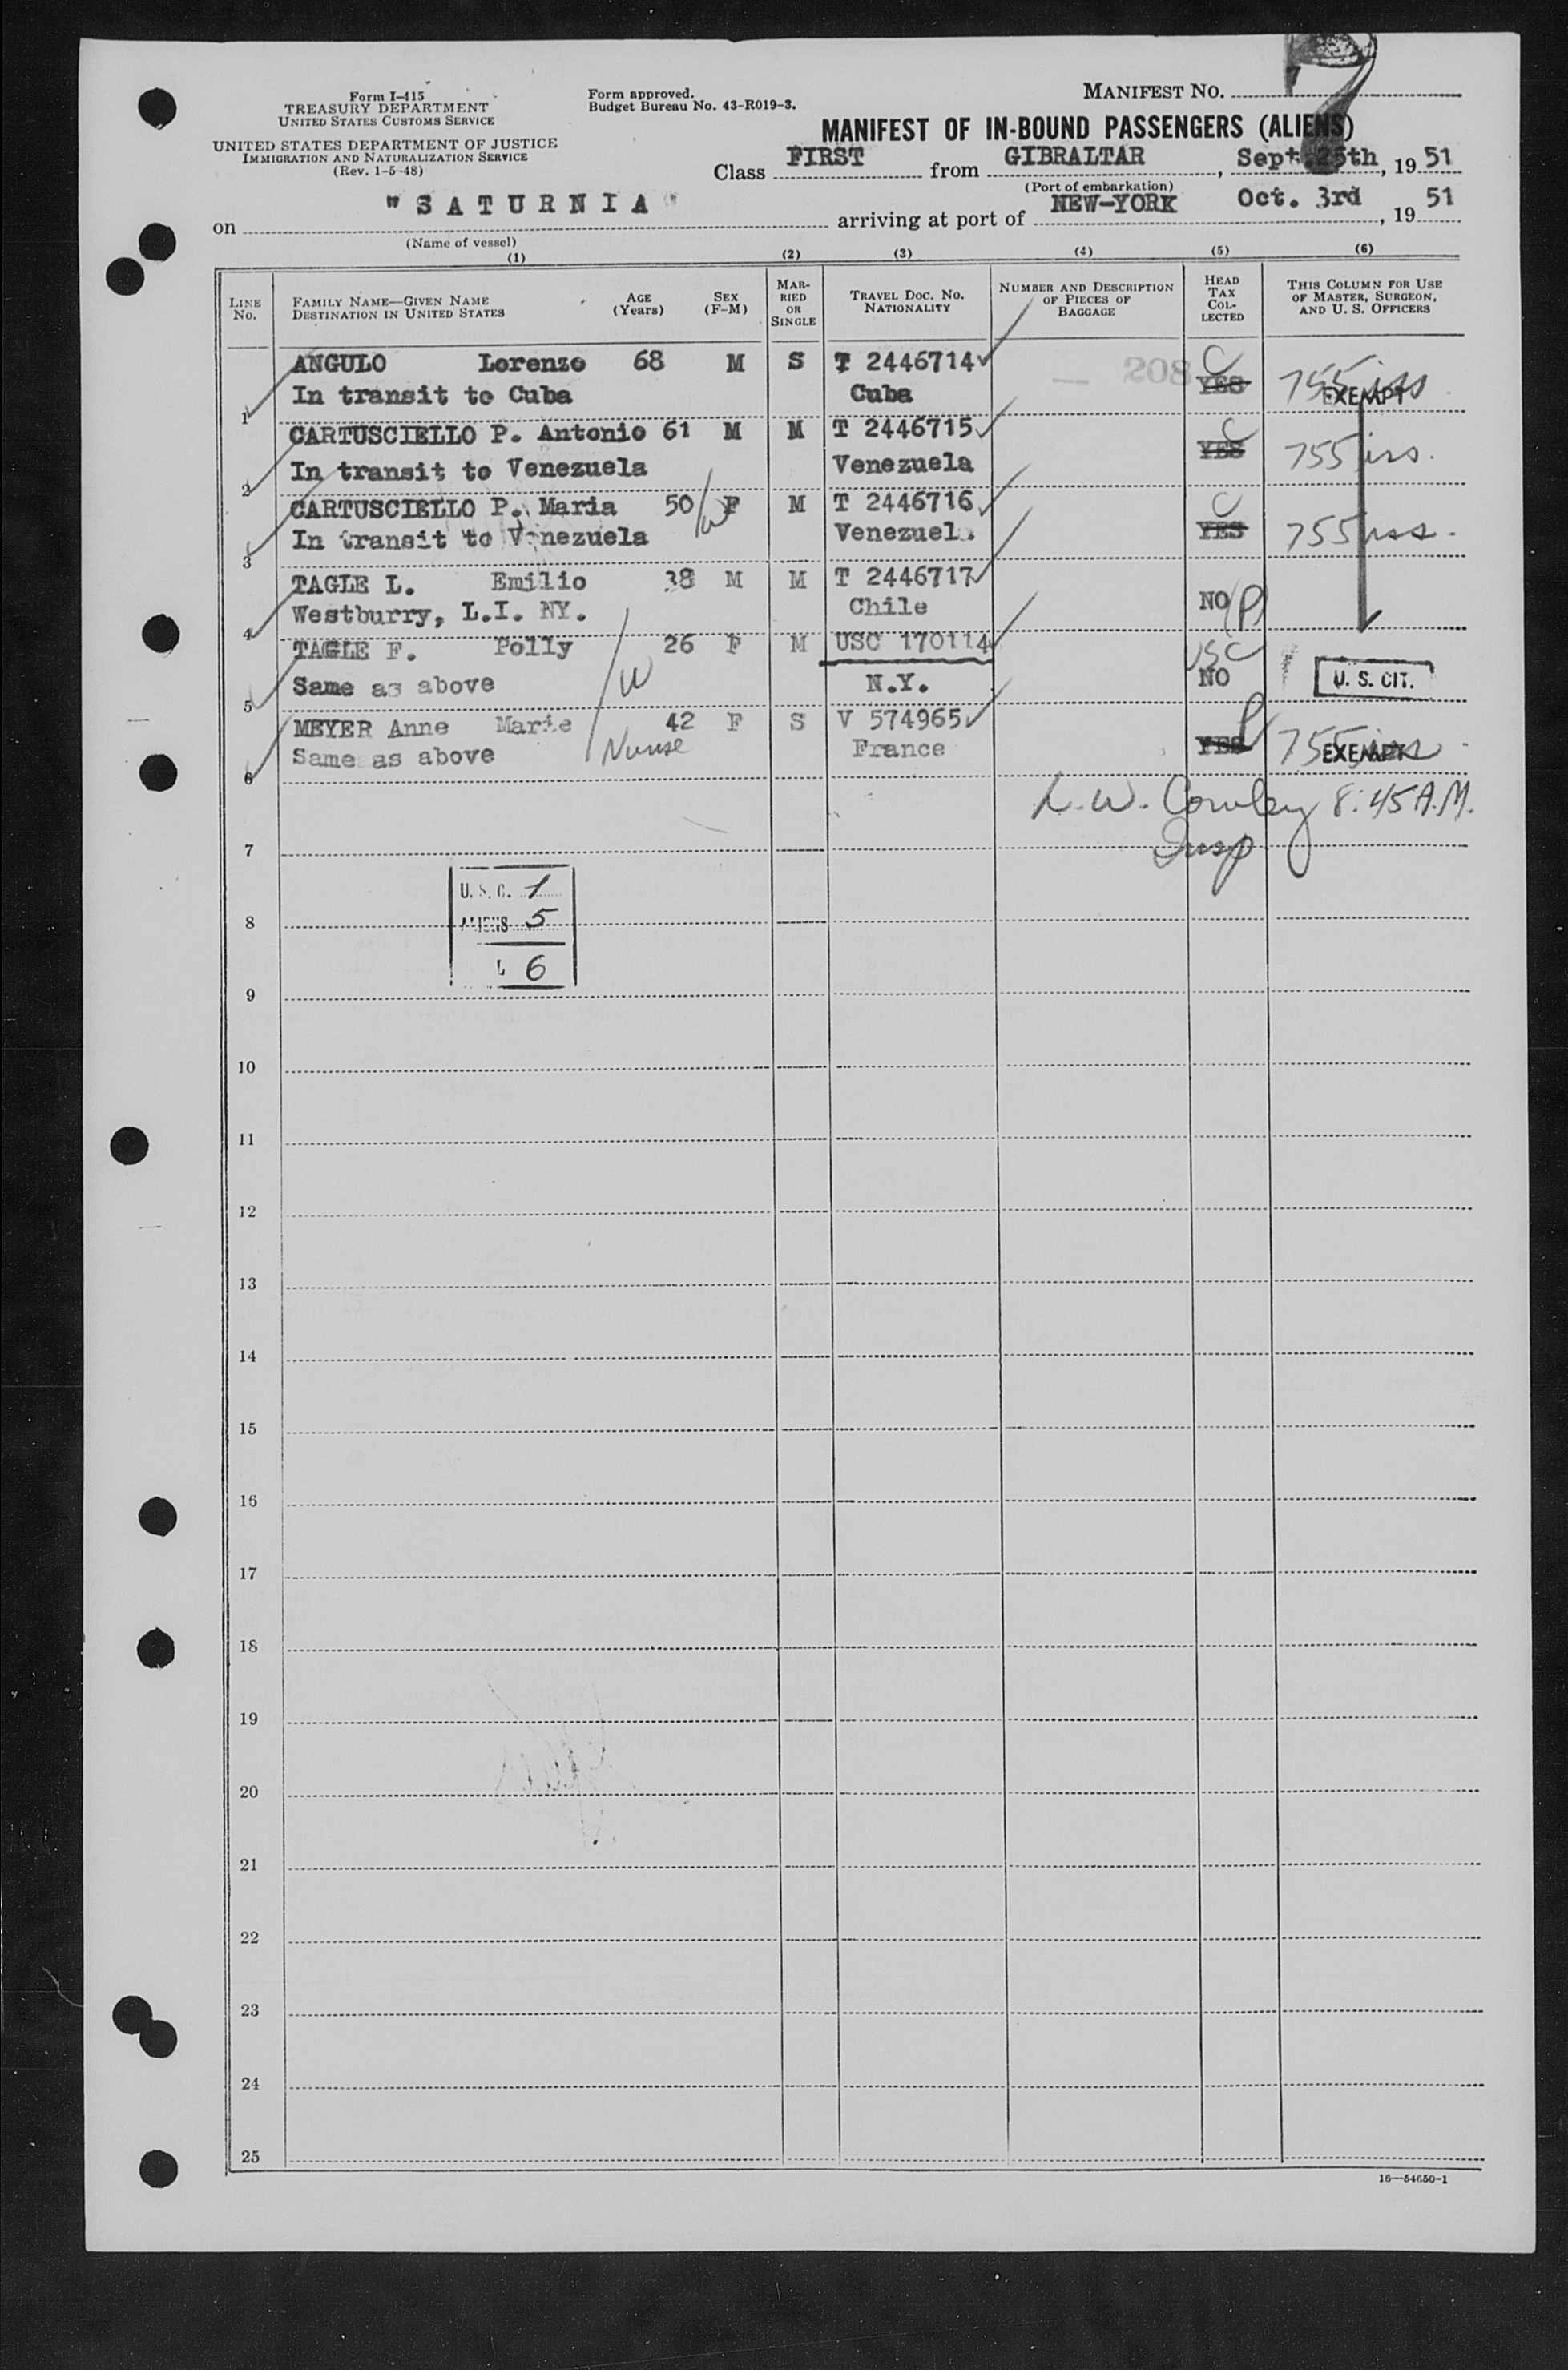 Form I-415
TREASURY DEPARTMENT
UNITED STATES CUSTOMS SERVICE
UNITED STATES DEPARTMENT OF JUSTICE
IMMIGRATION AND NATURALIZATION SERVICE
(Rev. 1-5-48)
Form approved.
Budget Bureau No. 43-R019-3.
MANIFEST NO. 7
MANIFEST OF IN-BOUND PASSENGERS (ALIENS)
Class FIRST from GIBRALTAR, Sept. 25th, 1951
(Port of embarkation)
on "SATURNIA" arriving at port of NEW-YORK Oct. 3rd, 1951
(Name of vessel)
(1) (2) (3) (4) (5) (6)
LINE NO. FAMILY NAME—GIVEN NAME DESTINATION IN UNITED STATES AGE (Years) SEX (F-M) MARRIED OR SINGLE TRAVEL DOC. NO. NATIONALITY NUMBER AND DESCRIPTION OF PIECES OF BAGGAGE HEAD TAX COLLECTED THIS COLUMN FOR USE OF MASTER, SURGEON, AND U. S. OFFICERS
ANGULO Lorenzo 68 M S T 2446714 208 C
1 In transit to Cuba Cuba YES 755 iss EXEMPT
CARTUSCIELLO P. Antonio 61 M M T 2446715 C
2 In transit to Venezuela Venezuela YES 755 iss.
CARTUSCIELLO P. Maria 50 W F M T 2446716 C
3 In transit to Venezuela Venezuel. YES 755 iss.
TAGLE L. Emilio 38 M M T 2446717
4 Westburry, L.I. NY. Chile NO P
TAGLE F. Polly 26 F M USC 170114 USC
5 Same as above W N.Y. NO U. S. CIT.
MEYER Anne Marie 42 F S V 574965 P
6 Same as above Nurse France YES 755 iss EXEMPT
L. W. Cowley 8:45 A.M.
Insp
7
U. S. C. 1
8 ALIENS 5
L 6
9
10
11
12
13
14
15
16
17
18
19
20
21
22
23
24
25
16—54650-1